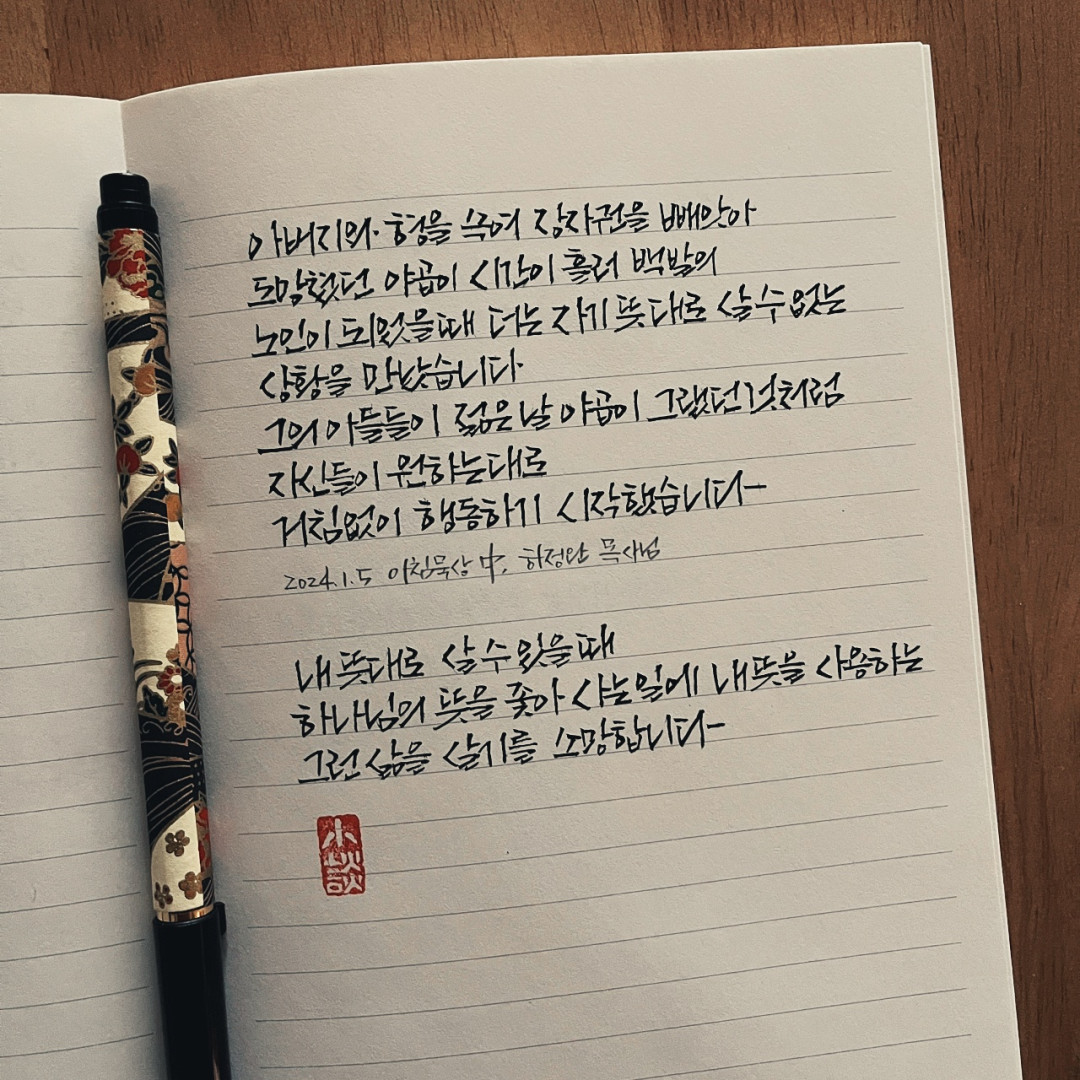 아버지와 형을 속여 장자권을 빼앗아
도망쳤던 야곱이 시간이 흘러 백발의
노인이 되었을때 더는 자기 뜻대로 살수없는
상황을 만났습니다
그의 아들들이 젊은날 야곱이 그랬던것처럼
자신들이 원하는대로
거침없이 행동하기 시작했습니다-
2024.1.5 아침묵상 中, 하정완 목사님
내 뜻대로 살 수 있을때
하나님의 뜻을 좇아 사는일에 내뜻을 사용하는
그런 삶을 살기를 소망합니다-
小談